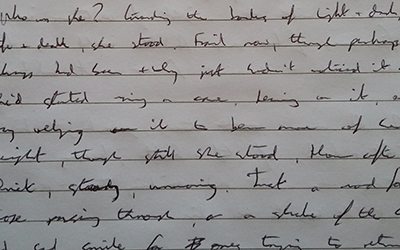 who was she? Guarding the borders of light + dark,
life + death, she stood. Frail now, though perhaps
always had been + they just hadn't noticed it
she'd started using a cane, leaning on it, a
relying on it to bear more of her
weight, though still she stood, hour after
, steady, unmoving. Just a nod for
those passing through, or a stroke of the
sad smile for ones trying to return